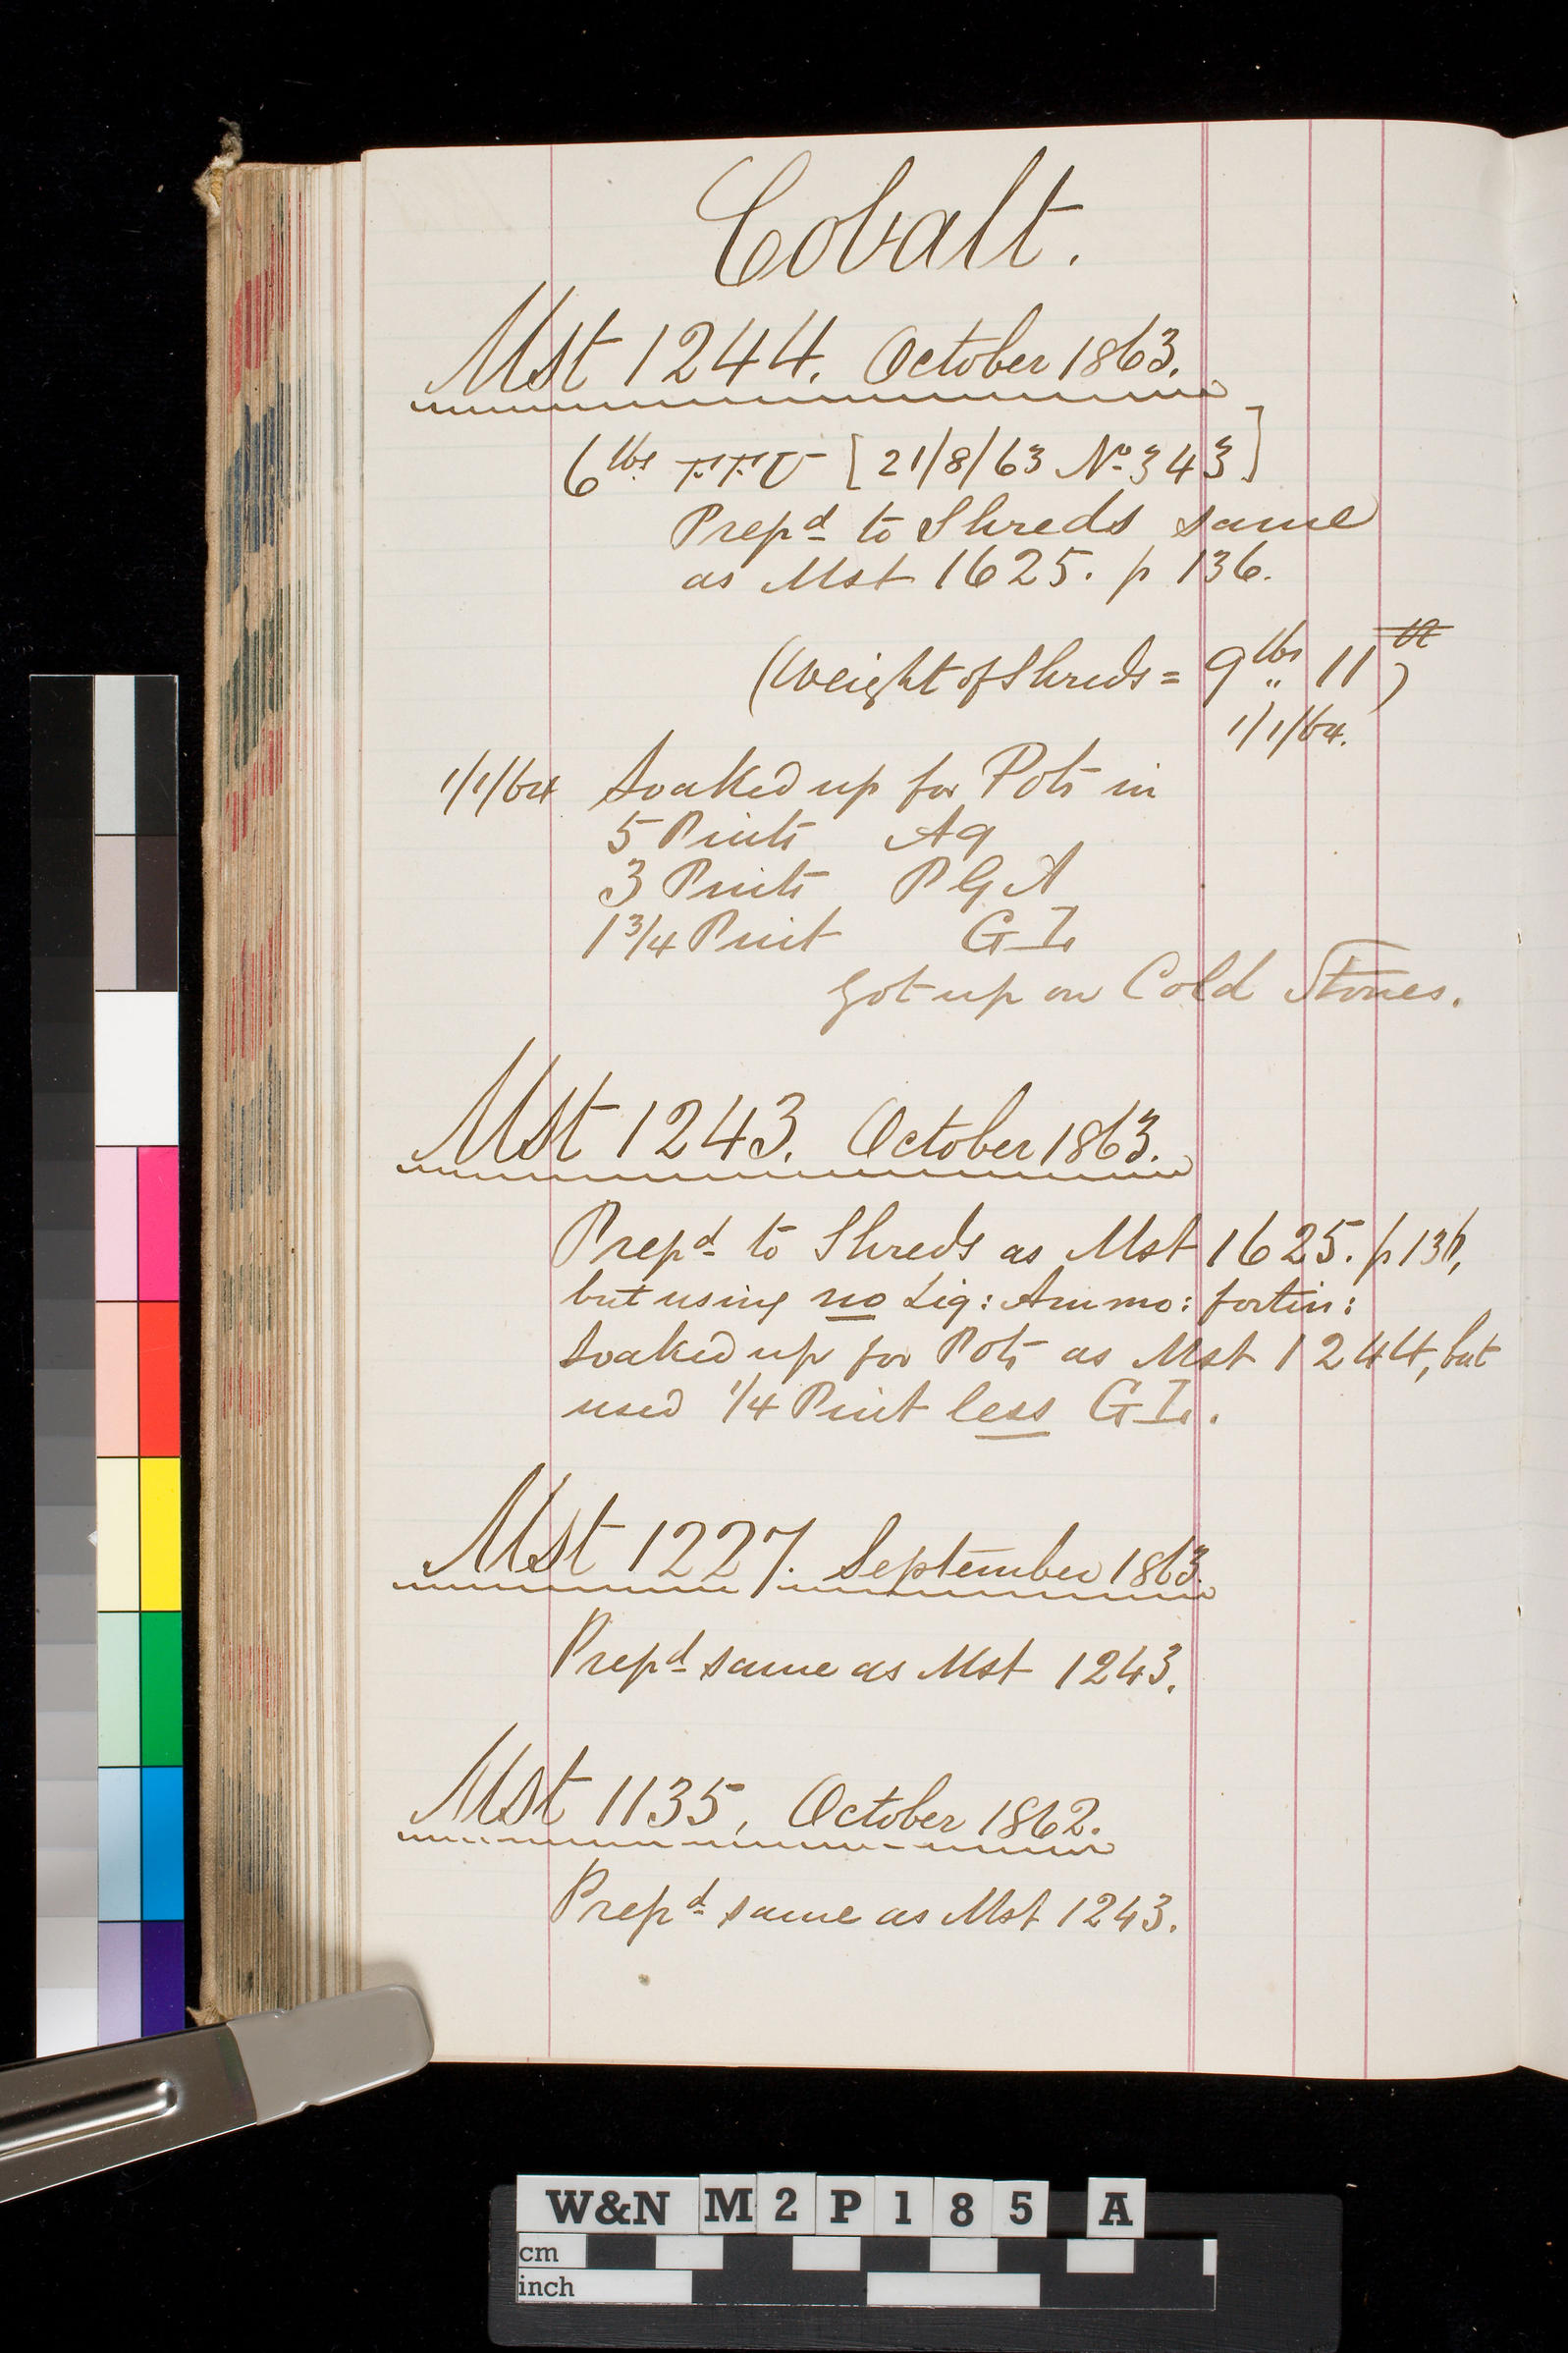 Cobalt.
Mst 1244. October 1863.
6 lbs F.F.U [21/8/63 No 343]
Prepd to Shreds same
as Mst 1625. p 136.
(Weight of Shreds = 9 lbs 11)
1/1/64.
1/1/64 Soaked up for Pots in
5 Pints Aq
3 Pints P G A
1 3/4 Pint G I
Got up on Cold Stones.
Mst 1243. October 1863.
Prepd to Shreds as Mst 1625. p 136,
but using no Liq: Ammo: fortis:
Soaked up for Pots as Mst 1244, but
used 1/4 Pint less G I.
Mst 1227. September 1863.
Prepd same as Mst 1243.
Mst 1135, October 1862.
Prepd same as Mst 1243.
W&N M2P185 A
cm
inch